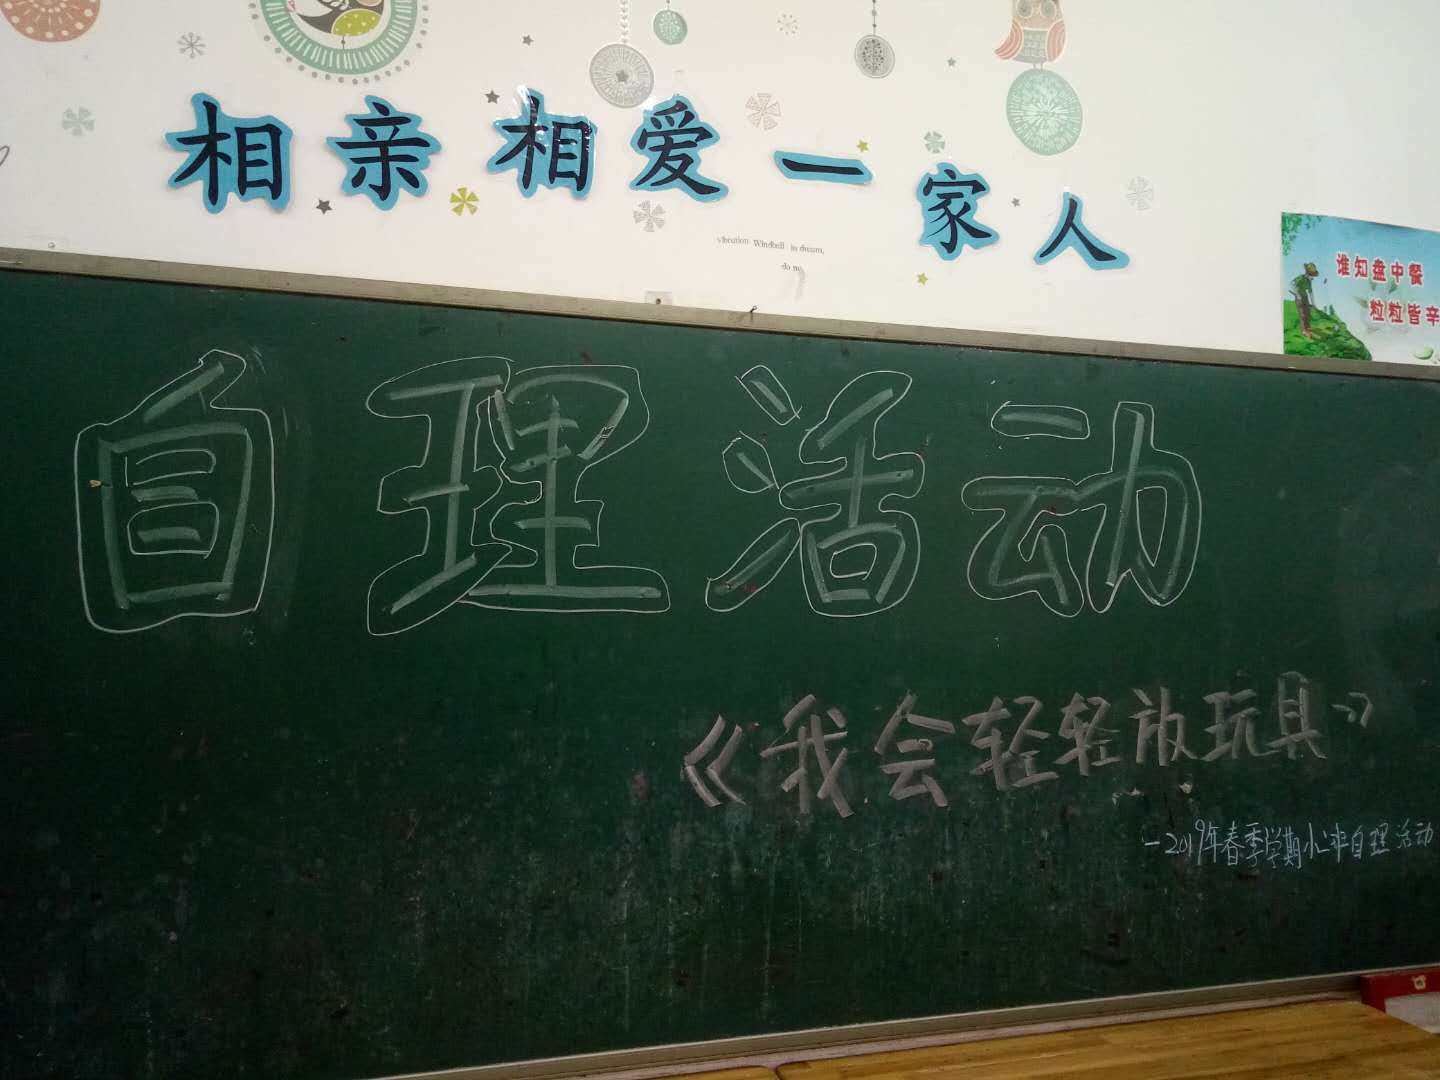 相亲相爱一家人
vibration Windbell in dream,
do
谁知盘中餐
粒粒皆辛
自理活动
《我会轻轻放玩具》
-2019年春季学期小二班自理活动